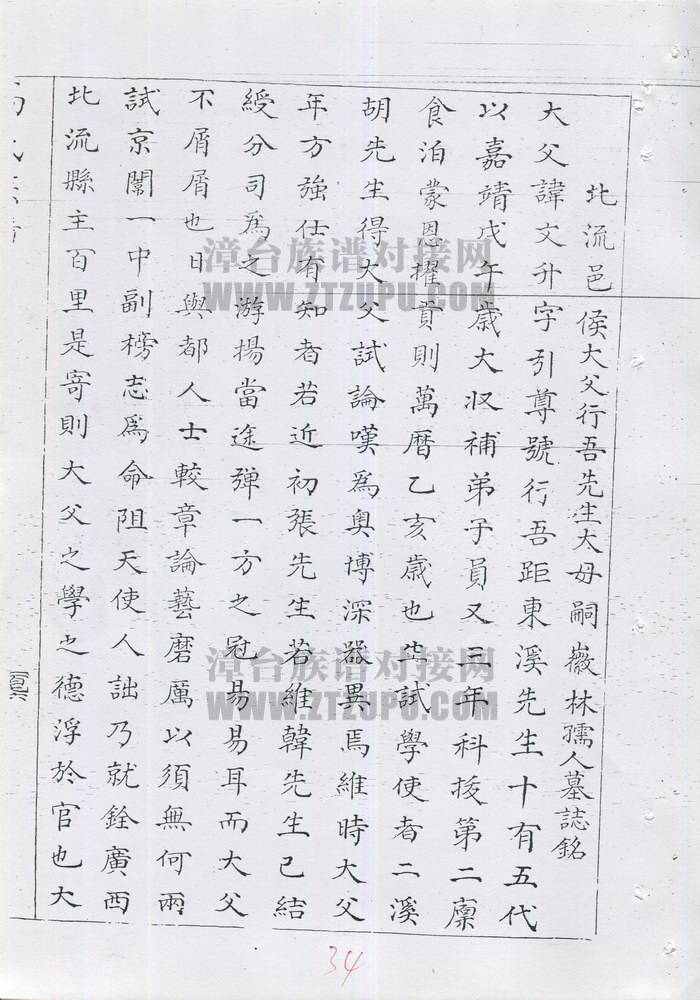 北流邑侯大父行吾先生大母嗣嶶林孺人墓誌銘
大父諱文升字引尊號行吾距東溪先生十有五代
以嘉靖戊午歲大収補弟子員又三年科拔第二廩
食洎蒙恩擢貢則萬曆乙亥歲也華試學使者二溪
胡先生得大父試論嘆為奥博深器異焉維時大父
年方強仕有知者若近初張先生若維韓先生已結
綬分司為之游揚當途彈一方之冠易易耳而大父
不屑屑也日與都人士較章論藝磨厲以須無何兩
試京闈一中副榜志為命阻天使人詘乃就銓廣西
北流縣主百里是寄則大父之學之德浮於官也大
漳台族谱对接网
WWW.ZTZUPU.COM
漳台族谱对接网
WWW.ZTZUPU.COM
34